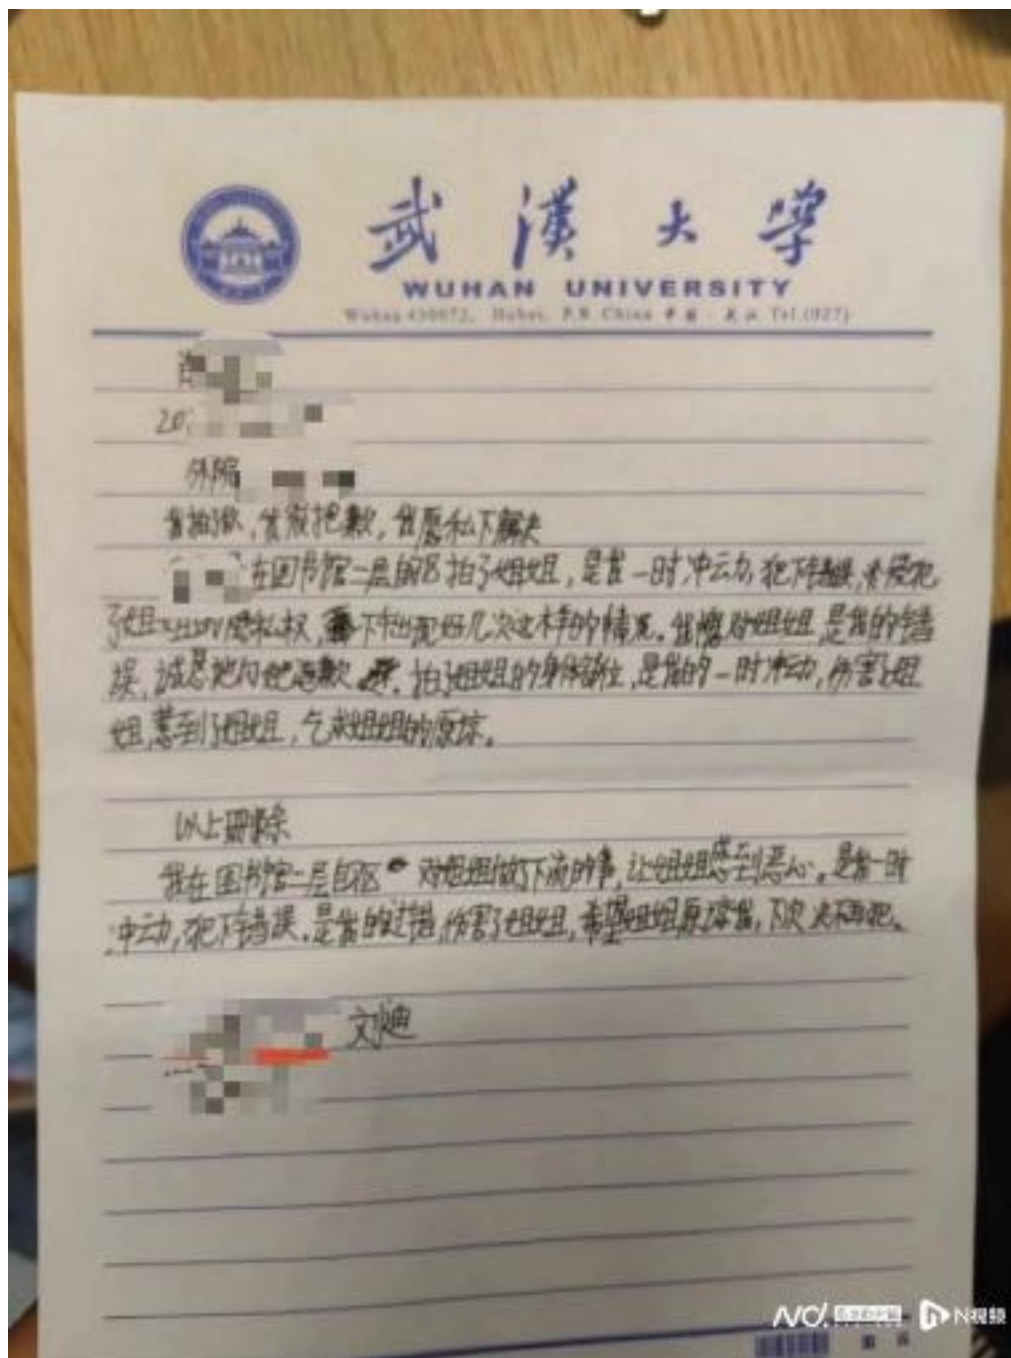 武漢大學
WUHAN UNIVERSITY
Wuhan 430072, Hubei, P.R. China 中国·武汉 Tel.(027)
20
外院
我拍了你,我很抱歉,我愿私下解决
在图书馆二层自区拍了姐姐,是我一时冲动,犯下错误,
了姐姐隐私权,下出现好几次这样的情况。我对姐姐是我的错
误,诚恳地向她道歉。拍了姐姐的身体部位,是我的一时冲动,伤害了姐
姐,惹到了姐姐,乞求姐姐的原谅。
以上删除
我在图书馆二层自区对姐姐做了下流的事,让姐姐感到恶心。是我一时
冲动,犯下错误。是我的过错,伤害了姐姐,希望姐姐原谅我,下次决不再犯。
N视频